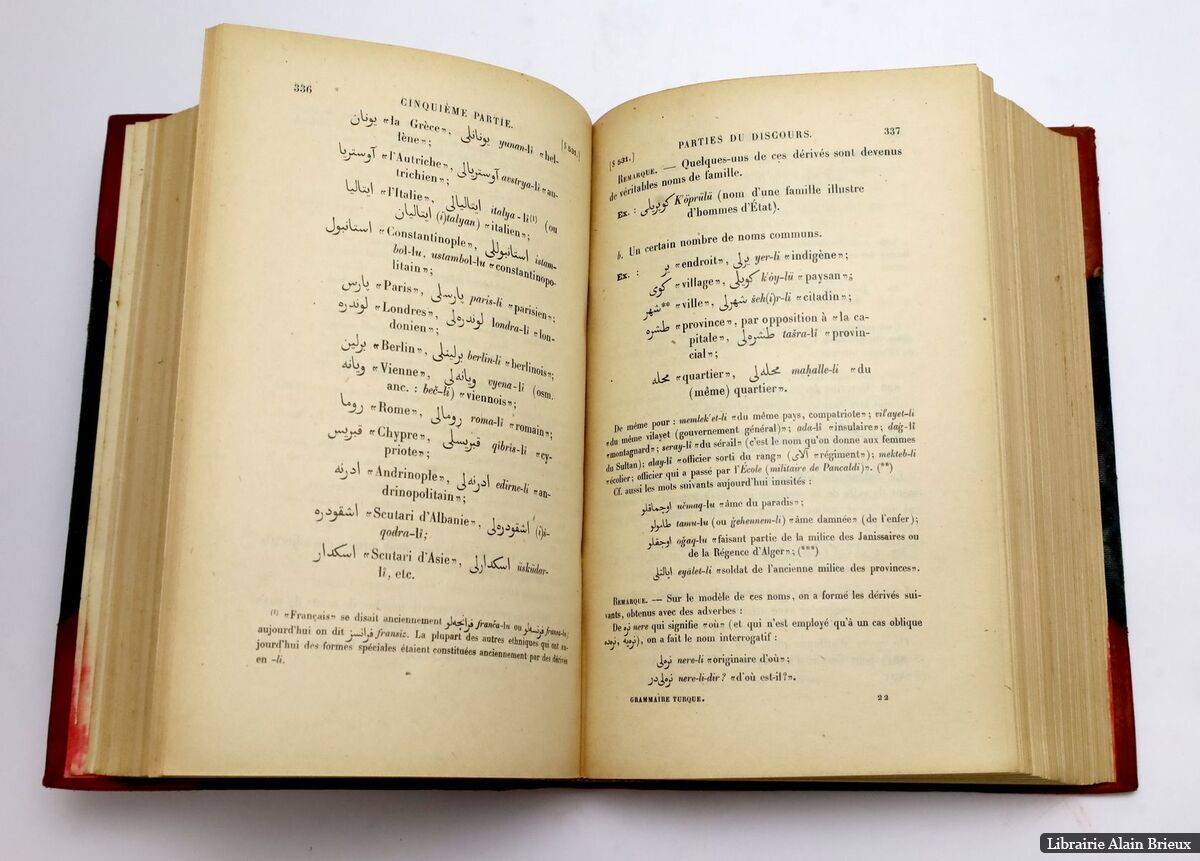 336
CINQUIÈME PARTIE.
[§ 531.]
یونان «la Grèce», یونانلی yunan-li «hel-
lène»;
آوستریا «l'Autriche», آوستریالی avstrya-li «au-
trichien»;
ایتالیا «l'Italie», ایتالیالی italya-li(1) (ou
ایتالیان (i)talyan) «italien»;
استانبول «Constantinople», استانبوللی istam-
bol-lu, ustambol-lu «constantinopo-
litain»;
پارس «Paris», پارسلی paris-li «parisien»;
لوندره «Londres», لوندره‌لی londra-li «lon-
donien»;
برلین «Berlin», برلینلی berlin-li «berlinois»;
ویانه «Vienne», ویانه‌لی vyena-li (osm.
anc. : beč-li) «viennois»;
روما «Rome», رومالی roma-li «romain»;
قبریس «Chypre», قبریسلی qibris-li «cy-
priote»;
ادرنه «Andrinople», ادرنه‌لی edirne-li «an-
drinopolitain»;
اشقودره «Scutari d'Albanie», اشقودره‌لی (i)š-
qodra-lî;
اسکدار «Scutari d'Asie», اسکدارلی üsküdar-
lî, etc.
(1) «Français» se disait anciennement فرانچه‌لو franča-lu ou فرنسه‌لو fransa-lu;
aujourd'hui on dit فرانسز fransiz. La plupart des autres ethniques qui ont au-
jourd'hui des formes spéciales étaient constituées anciennement par des dérivés
en -li.
PARTIES DU DISCOURS.
337
[§ 531.]
REMARQUE. — Quelques-uns de ces dérivés sont devenus
de véritables noms de famille.
Ex. : کوپریلی K'öprülü (nom d'une famille illustre
d'hommes d'État).
b. Un certain nombre de noms communs.
Ex. : یر «endroit», یرلی yer-li «indigène»;
کوی «village», کویلی k'öy-lü «paysan»;
شهر** «ville», شهرلی šeh(i)r-li «citadin»;
طشره «province», par opposition à «la ca-
pitale», طشره‌لی tašra-lî «provin-
cial»;
محله «quartier», محله‌لی maḥalle-li «du
(même) quartier».
De même pour : memlek'et-li «du même pays, compatriote»; vil'ayet-li
«du même vilayet (gouvernement général)»; ada-lî «insulaire»; daġ-lî
«montagnard»; seray-lî «du sérail» (c'est le nom qu'on donne aux femmes
du Sultan); alay-lî «officier sorti du rang» (آلای «régiment»); mekteb-li
«écolier; officier qui a passé par l'École (militaire de Pancaldi)». (**)
Cf. aussi les mots suivants aujourd'hui inusités :
اوجماقلو učmaq-lu «âme du paradis»;
طامولو tamu-lu (ou ġehennem-li) «âme damnée» (de l'enfer);
اوجقلو oġaq-lu «faisant partie de la milice des Janissaires ou
de la Régence d'Alger»; (***)
ایالتلی eyālet-li «soldat de l'ancienne milice des provinces».
REMARQUE. — Sur le modèle de ces noms, on a formé les dérivés sui-
vants, obtenus avec des adverbes :
De نره nere qui signifie «où» (et qui n'est employé qu'à un cas oblique
نرهیه, نرهده), on a fait le nom interrogatif :
نره‌لی nere-li «originaire d'où»;
نره‌لیدر nere-li-dir? «d'où est-il?».
GRAMMAIRE TURQUE.
22
Librairie Alain Brieux